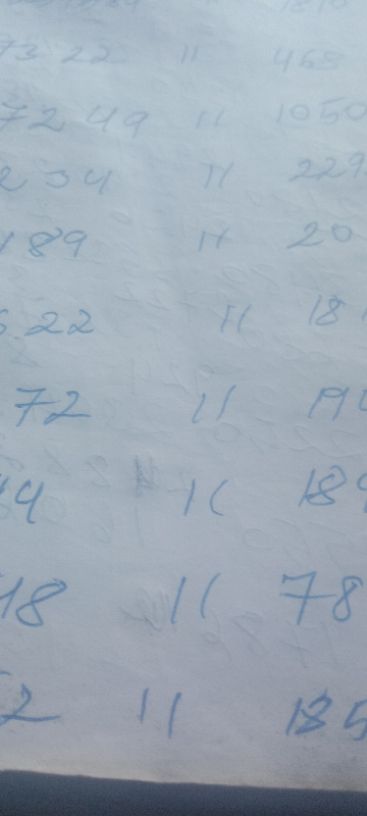 7322 11 468
7249 11 1050
234 11 229
189 11 20
522 11 18
72 11 19
44 11 189
18 11 78
2 11 185